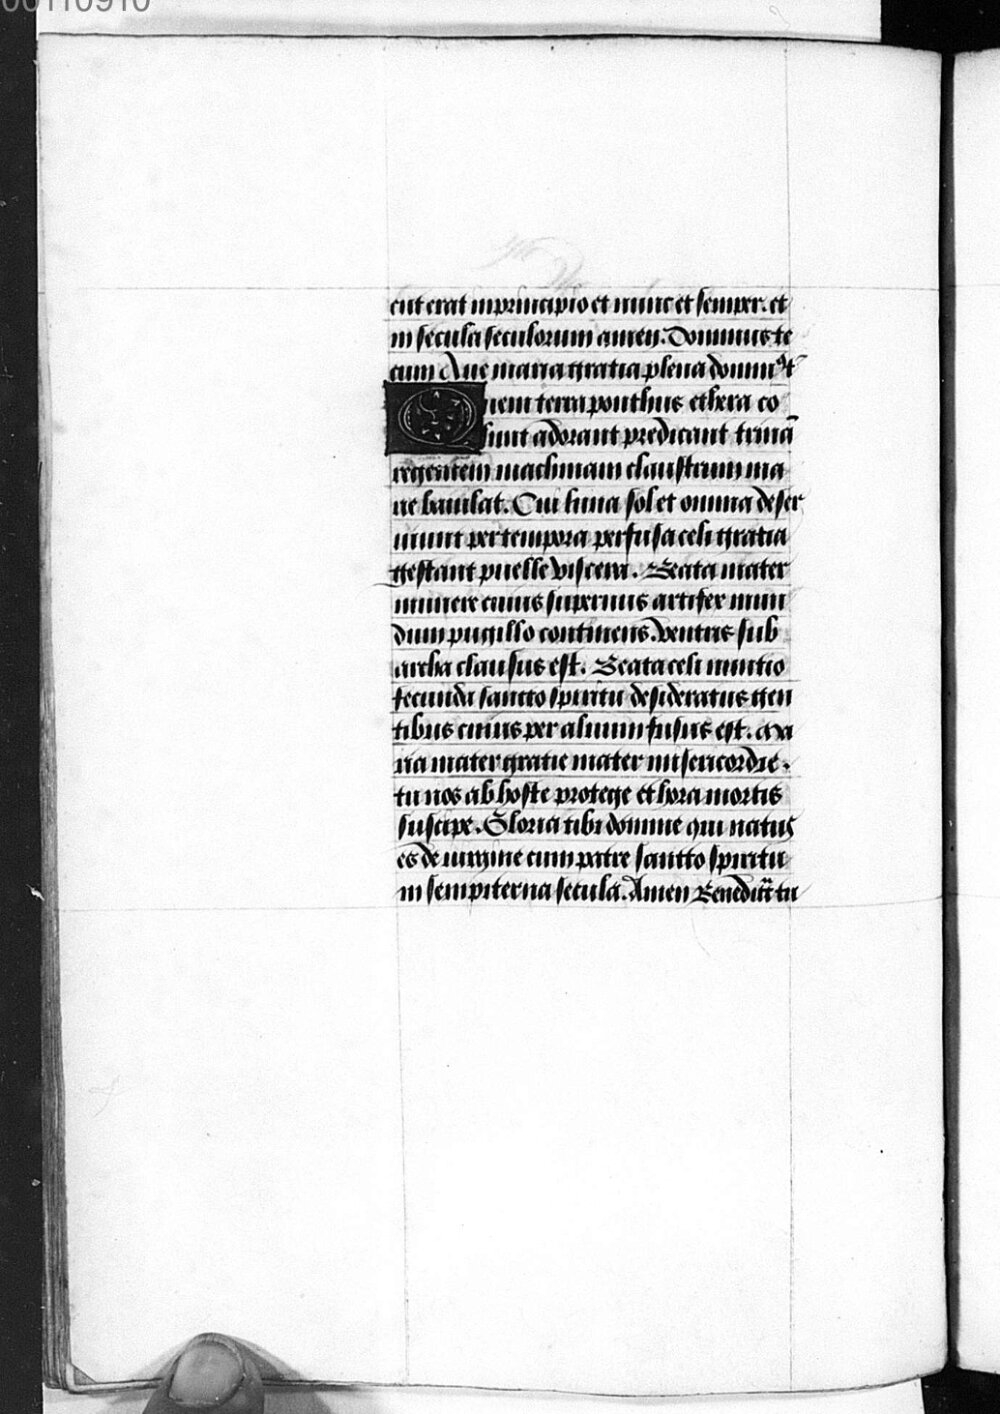 00110910
cut erat in principio et nunc et semper. et
in secula seculorum amen. Dominus te
cum Aue maria gratia plena domin9 t
Quem terra ponthus ethera co
lunt adorant predicant trinā
regentem machinam claustrum ma
rie baiulat. Cui luna sol et omnia deser
uiunt per tempora perfusa celi gratia
gestant puelle viscera. Beata mater
munere cuius supernus artifex mun
dum pugillo continens. ventris sub
archa clausus est. Beata celi nuntio
fecunda sancto spiritu desideratus gen
tibus cuius per aluum fusus est. Ma
ria mater gratie mater misericordie.
tu nos ab hoste protege et hora mortis
suscipe. Gloria tibi domine qui natus
es de uirgine cum patre sancto spiritu
in sempiterna secula. Amen Benedict tu